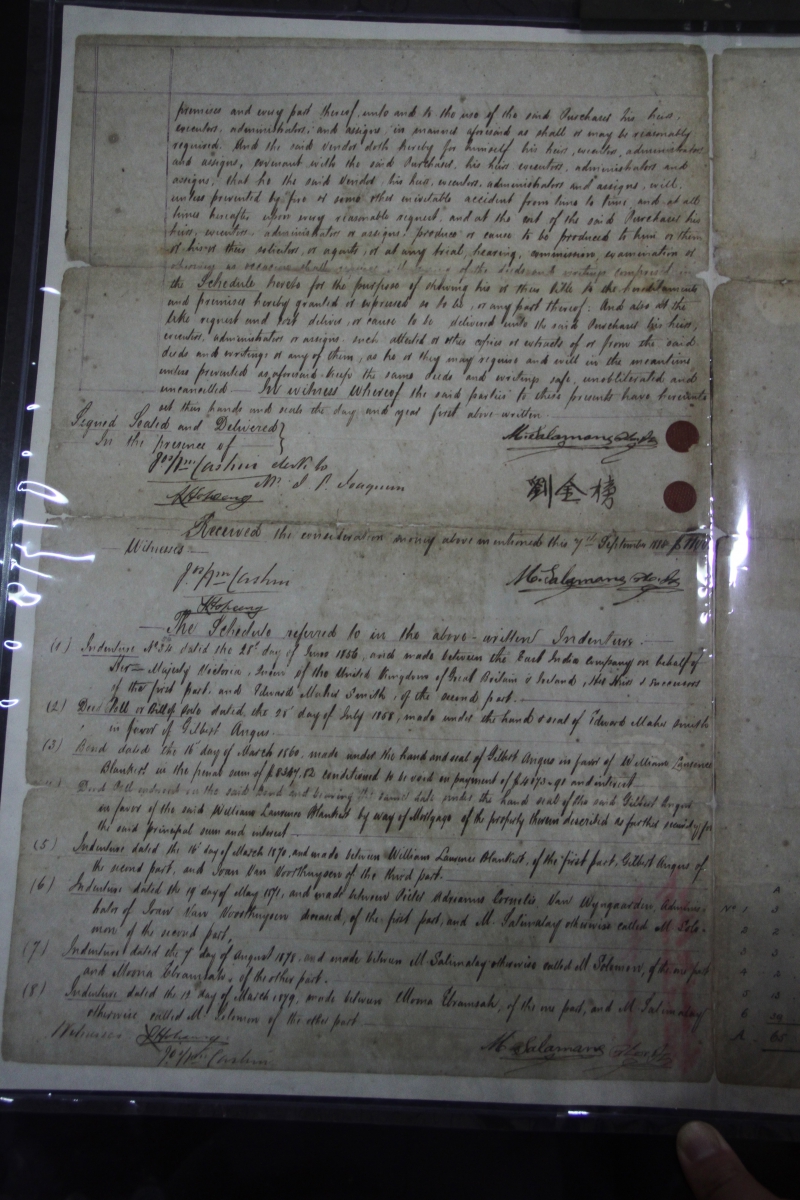 premises and every part thereof, unto and to the use of the said Purchaser his heirs,
executors, administrators, and assigns, in manner aforesaid as shall or may be reasonably
required. And the said Vendor doth hereby for himself, his heirs, executors, administrators
and assigns, covenant with the said Purchaser, his heirs, executors, administrators and
assigns, that he the said Vendor, his heirs, executors, administrators and assigns, will,
unless prevented by fire or some other inevitable accident from time to time, and at all
times hereafter, upon every reasonable request, and at the cost of the said Purchaser his
heirs, executors, administrators or assigns, produce or cause to be produced to him or them
or his or their solicitor, or agents, or at any trial, hearing, commission, examination or
otherwise as occasion shall require all of the deeds and writings comprised in
the Schedule hereto for the purpose of shewing his or their title to the hereditaments
and premises hereby granted or expressed so to be, or any part thereof. And also at the
like request and cost deliver, or cause to be delivered unto the said Purchaser his heirs,
executors, administrators or assigns, such attested or other copies or extracts of or from the said
deeds and writings or any of them, as he or they may require and will in the meantime
unless prevented as aforesaid keep the same deeds and writings safe, unobliterated and
uncancelled. In witness whereof the said parties to these presents have hereunto
set their hands and seals the day and year first above written.
Signed Sealed and Delivered
In the presence of
劉金榜
Received the consideration money above mentioned this 7th September
Witnesses
The Schedule referred to in the above-written Indenture.
(1) Indenture No. 34 dated the 28th day of June 1856, and made between the East India Company on behalf of
Her Majesty Victoria, Queen of the United Kingdom of Great Britain & Ireland, Her Heirs & Successors
of the first part, and Edward Maher Smith, of the second part.
(2) Deed Poll or Bill of Sale dated the 28th day of July 1858, made under the hand & seal of Edward Maher Smith
in favor of Gilbert Angus.
(3) Bond dated the 16th day of March 1860, made under the hand and seal of Gilbert Angus in favor of William Lawrence
Blankert in the penal sum of $8347.82 conditioned to be void in payment of $4173.91 and interest
Deed Poll indorsed on the said Bond and bearing the same date under the hand & seal of the said Gilbert Angus
in favor of the said William Lawrence Blankert by way of Mortgage of the property therein described as further security for
the said principal sum and interest
(5) Indenture dated the 16th day of March 1870, and made between William Lawrence Blankert, of the first part, Gilbert Angus of
the second part, and Ivan Van Voorthuysen of the third part.
(6) Indenture dated the 19 day of May 1871, and made between Pieter Adrianus Cornelis Van Wyngaarden, Adminis-
trator of Ivan Van Voorthuysen deceased, of the first part, and M Saturnalay otherwise called M Solo-
mon of the second part,
(7) Indenture dated the 7 day of August 1878, and made between M Saturnalay otherwise called M Solomon, of the one part
and Moona Ebramsah, of the other part.
(8) Indenture dated the 19 day of March 1879, made between Moona Ebramsah, of the one part, and M Saturnalay
otherwise called M Solomon of the other part
Witnesses